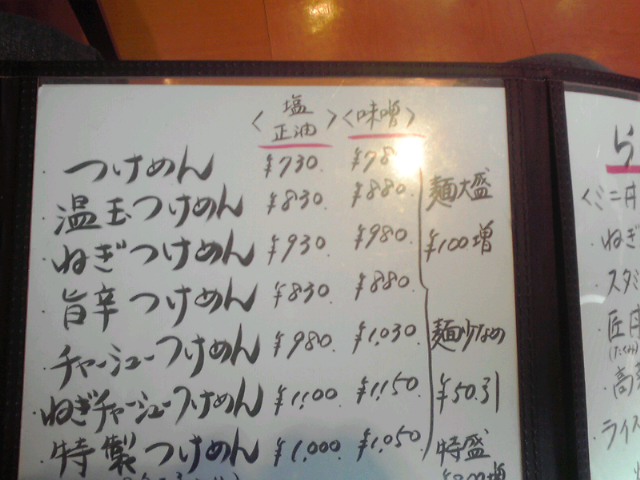 〈塩 正油〉 〈味噌〉
・つけめん ¥730. ¥78
・温玉つけめん ¥830. ¥880.
・ねぎつけめん ¥930. ¥980.
・旨辛つけめん ¥830. ¥880.
・チャーシューつけめん ¥980. ¥1,030.
・ねぎチャーシューつけめん ¥1,100. ¥1,150.
・特製つけめん ¥1,000. ¥1,050.
麺大盛
¥100増
麺少なめ
¥50引
特盛
ら
〈ミニ丼
・ねぎ
・スタミ
・匠
(たくみ)
・高
・ライス